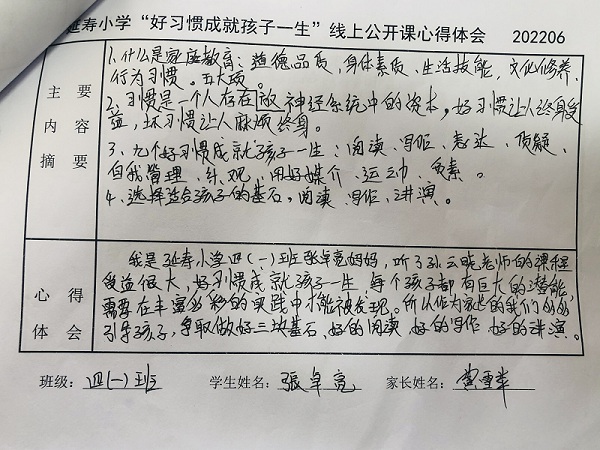 延寿小学“好习惯成就孩子一生”线上公开课心得体会 202206
主要
内容
摘要
1、什么是家庭教育：道德品质，身体素质、生活技能，文化修养，
行为习惯。五大项。
2、习惯是一个人存在放神经系统中的资本，好习惯让人终身受
益，坏习惯让人麻烦终身。
3、九个好习惯成就孩子一生：阅读、写作、表达、质疑、
自我管理、乐观、用好媒介、运动、负责。
4、选择适合孩子的基石，阅读、写作、讲演。
心得
体会
我是延寿小学四(一)班张卓亮妈妈，听了孙云晓老师的课程
受益很大，好习惯成就孩子一生，每个孩子都有巨大的潜能，
需要在丰富多彩的实践中才能被发现。所以作为家长的我们
引导孩子，争取做好三块基石、好的阅读、好的写作、好的讲演。
班级：四(一)班 学生姓名：張卓亮 家长姓名：